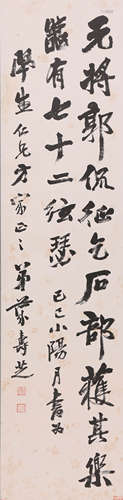 元将郭侃征乞石部獲其樂
器有七十二弦琵 己巳小陽月書為
學生仁兄方家正之 弟葉壽芝